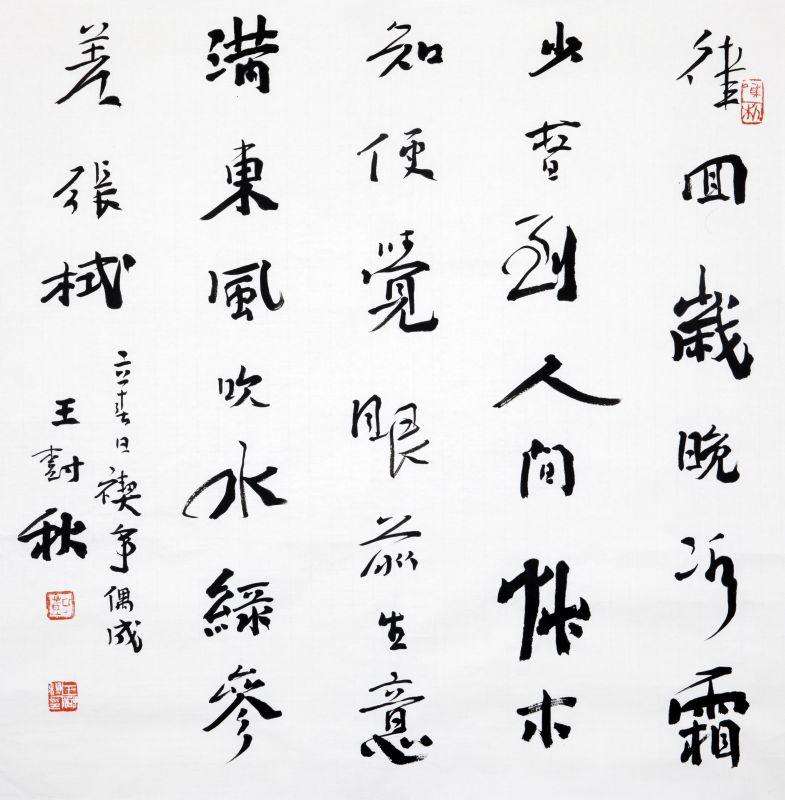 律回歲晚冰霜
少春到人間草木
知便覺眼前生意
滿東風吹水綠參
差張栻
立春日禊亭偶成
王樹秋